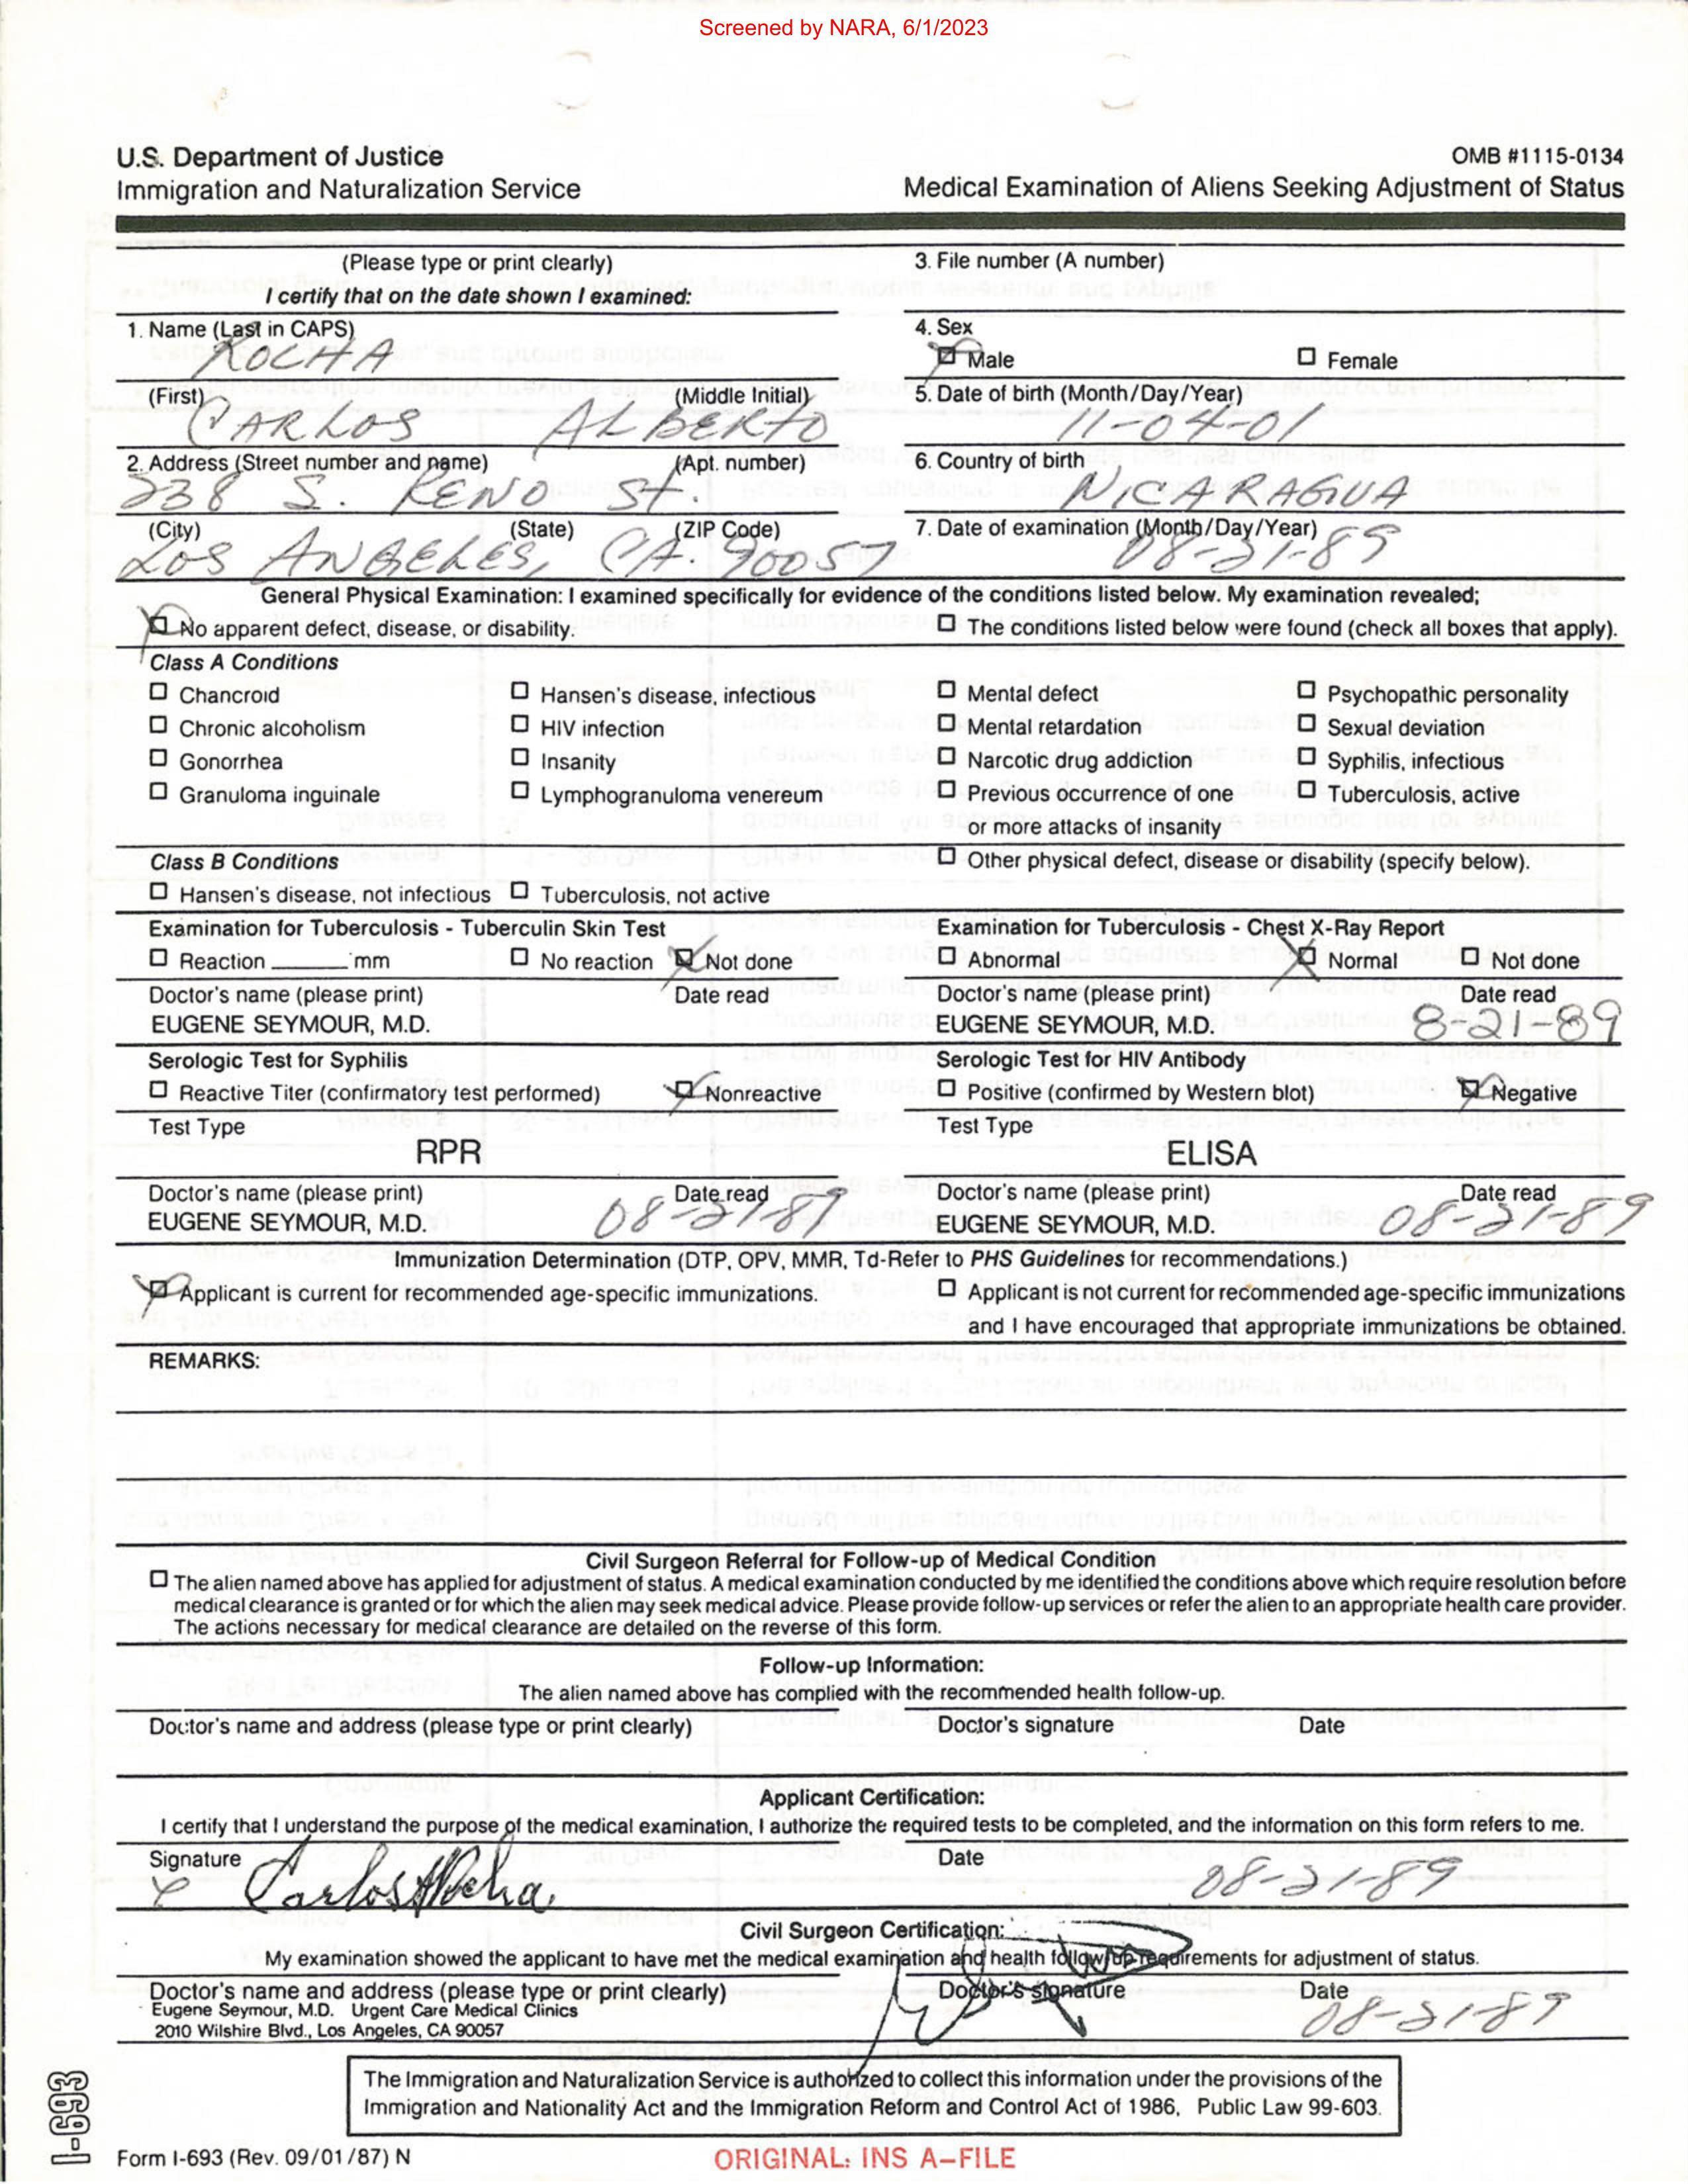 Screened by NARA, 6/1/2023
U.S. Department of Justice
Immigration and Naturalization Service
OMB #1115-0134
Medical Examination of Aliens Seeking Adjustment of Status
(Please type or print clearly)
I certify that on the date shown I examined:
3. File number (A number)
1. Name (Last in CAPS)
ROCHA
4. Sex
Male
Female
(First)
(Middle Initial)
CARLOS ALBERTO
5. Date of birth (Month/Day/Year)
11-04-01
2. Address (Street number and name)
(Apt. number)
238 S. RENO St.
6. Country of birth
NICARAGUA
(City)
(State)
(ZIP Code)
LOS ANGELES, CA. 90057
7. Date of examination (Month/Day/Year)
08-21-89
General Physical Examination: I examined specifically for evidence of the conditions listed below. My examination revealed;
No apparent defect, disease, or disability.
The conditions listed below were found (check all boxes that apply).
Class A Conditions
Chancroid
Hansen's disease, infectious
Mental defect
Psychopathic personality
Chronic alcoholism
HIV infection
Mental retardation
Sexual deviation
Gonorrhea
Insanity
Narcotic drug addiction
Syphilis, infectious
Granuloma inguinale
Lymphogranuloma venereum
Previous occurrence of one
or more attacks of insanity
Tuberculosis, active
Class B Conditions
Other physical defect, disease or disability (specify below).
Hansen's disease, not infectious
Tuberculosis, not active
Examination for Tuberculosis - Tuberculin Skin Test
Reaction ______ mm
No reaction
Not done
Doctor's name (please print)
Date read
EUGENE SEYMOUR, M.D.
Examination for Tuberculosis - Chest X-Ray Report
Abnormal
Normal
Not done
Doctor's name (please print)
Date read
EUGENE SEYMOUR, M.D.
8-21-89
Serologic Test for Syphilis
Reactive Titer (confirmatory test performed)
Nonreactive
Test Type
RPR
Doctor's name (please print)
Date read
EUGENE SEYMOUR, M.D.
08-21-89
Serologic Test for HIV Antibody
Positive (confirmed by Western blot)
Negative
Test Type
ELISA
Doctor's name (please print)
Date read
EUGENE SEYMOUR, M.D.
08-21-89
Immunization Determination (DTP, OPV, MMR, Td-Refer to PHS Guidelines for recommendations.)
Applicant is current for recommended age-specific immunizations.
Applicant is not current for recommended age-specific immunizations
and I have encouraged that appropriate immunizations be obtained.
REMARKS:
Civil Surgeon Referral for Follow-up of Medical Condition
The alien named above has applied for adjustment of status. A medical examination conducted by me identified the conditions above which require resolution before
medical clearance is granted or for which the alien may seek medical advice. Please provide follow-up services or refer the alien to an appropriate health care provider.
The actions necessary for medical clearance are detailed on the reverse of this form.
Follow-up Information:
The alien named above has complied with the recommended health follow-up.
Doctor's name and address (please type or print clearly)
Doctor's signature
Date
Applicant Certification:
I certify that I understand the purpose of the medical examination, I authorize the required tests to be completed, and the information on this form refers to me.
Signature
Carlos A Rocha
Date
08-21-89
Civil Surgeon Certification:
My examination showed the applicant to have met the medical examination and health follow-up requirements for adjustment of status.
Doctor's name and address (please type or print clearly)
Doctor's signature
Date
Eugene Seymour, M.D. Urgent Care Medical Clinics
2010 Wilshire Blvd., Los Angeles, CA 90057
08-21-89
The Immigration and Naturalization Service is authorized to collect this information under the provisions of the
Immigration and Nationality Act and the Immigration Reform and Control Act of 1986, Public Law 99-603.
I-693
Form I-693 (Rev. 09/01/87) N
ORIGINAL: INS A-FILE